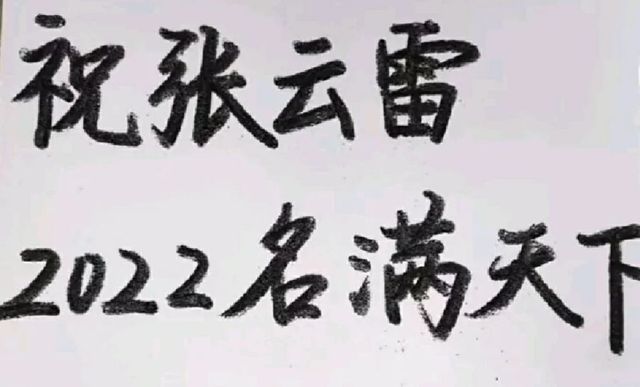 祝张云雷
2022名满天下